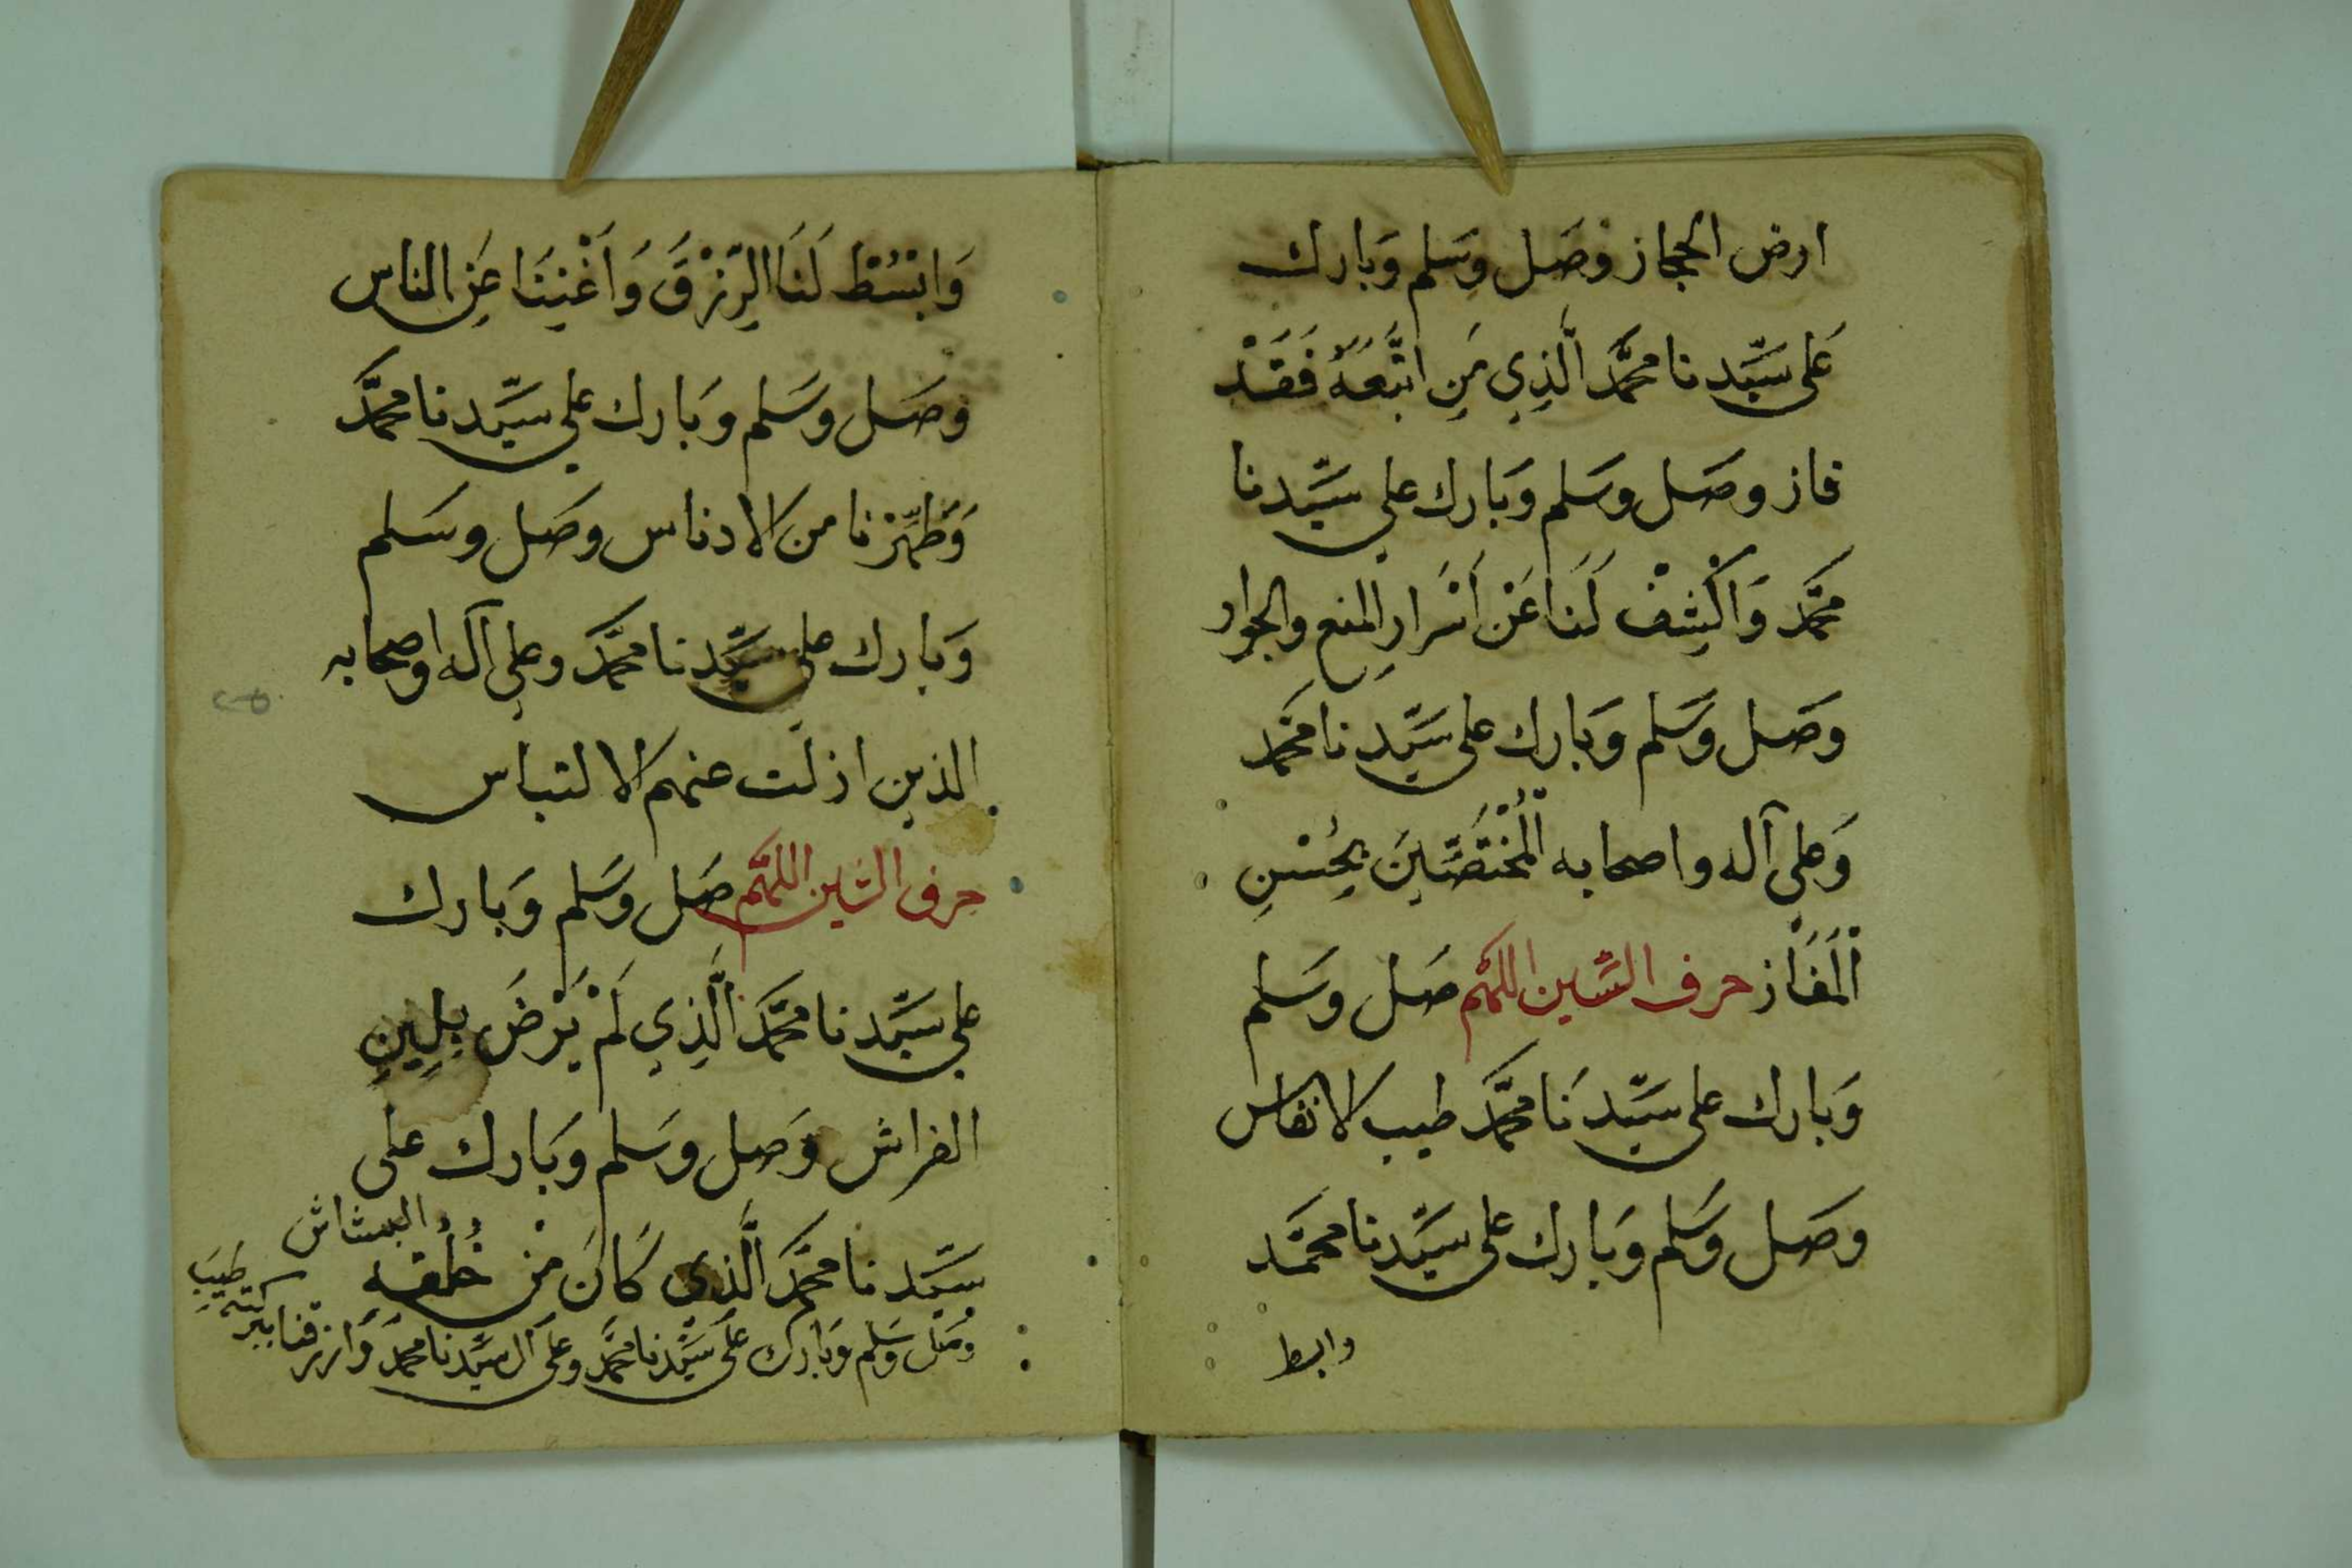 ارض الحجاز وصل وسلم وبارك
على سيّدنا محمّد الَّذِي مَنِ اتَّبَعَهُ فَقَدْ
فاز وصل وسلم وبارك على سيّدنا
محمّد وَاكْشِفْ لَنَا عَنْ أَسْرَارِ المنع والجواز
وصل وسلم وبارك على سيّدنا محمّد
وعلى آله واصحابه الْمُخْتَصِّينَ بِحُسْنِ
الْمَفَاز حرف السّين اللهمّ صل وسلم
وبارك على سيّدنا محمّد طيب الانفاس
وصل وسلم وبارك على سيّدنا محمّد
وابسط
وَابْسُطْ لَنَا الرِّزْقَ وَأَغْنِنَا عَنِ الناس
وصل وسلم وبارك على سيّدنا محمّد
وَطَهِّرْنا من الادناس وصل وسلم
وبارك على سيّدنا محمّد وعلى آله واصحابه
الذين ازلت عنهم الالتباس
حرف الشين اللهمّ صل وسلم وبارك
على سيّدنا محمّد الَّذِي لَمْ يَرْضَ بِلِينِ
الفراش وصل وسلم وبارك على
سيّدنا محمّد الَّذِي كَانَ مِنْ خُلُقِه البشاش
وصل وسلم وبارك على سيّدنا محمّد وعلى آل سيّدنا محمّد وارزقنا ببركته طيب